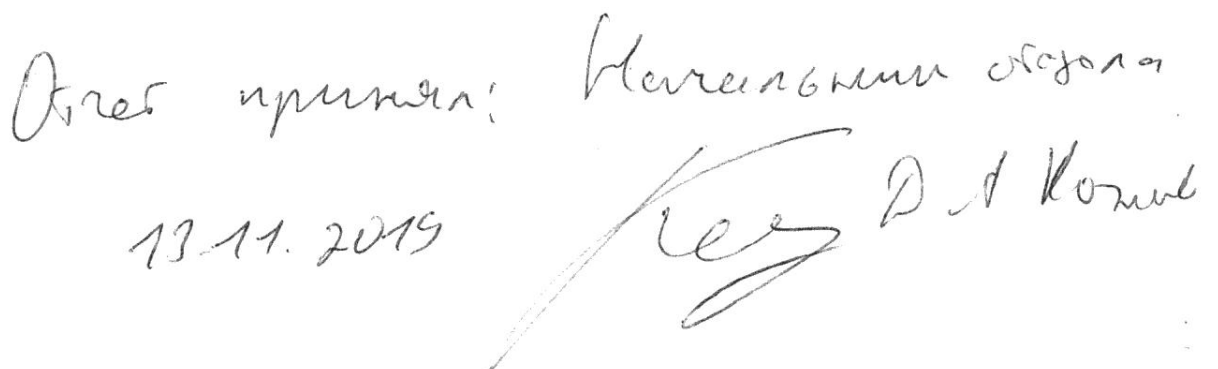 Отчет принял: Начальник отдела
13.11.2019 Д А